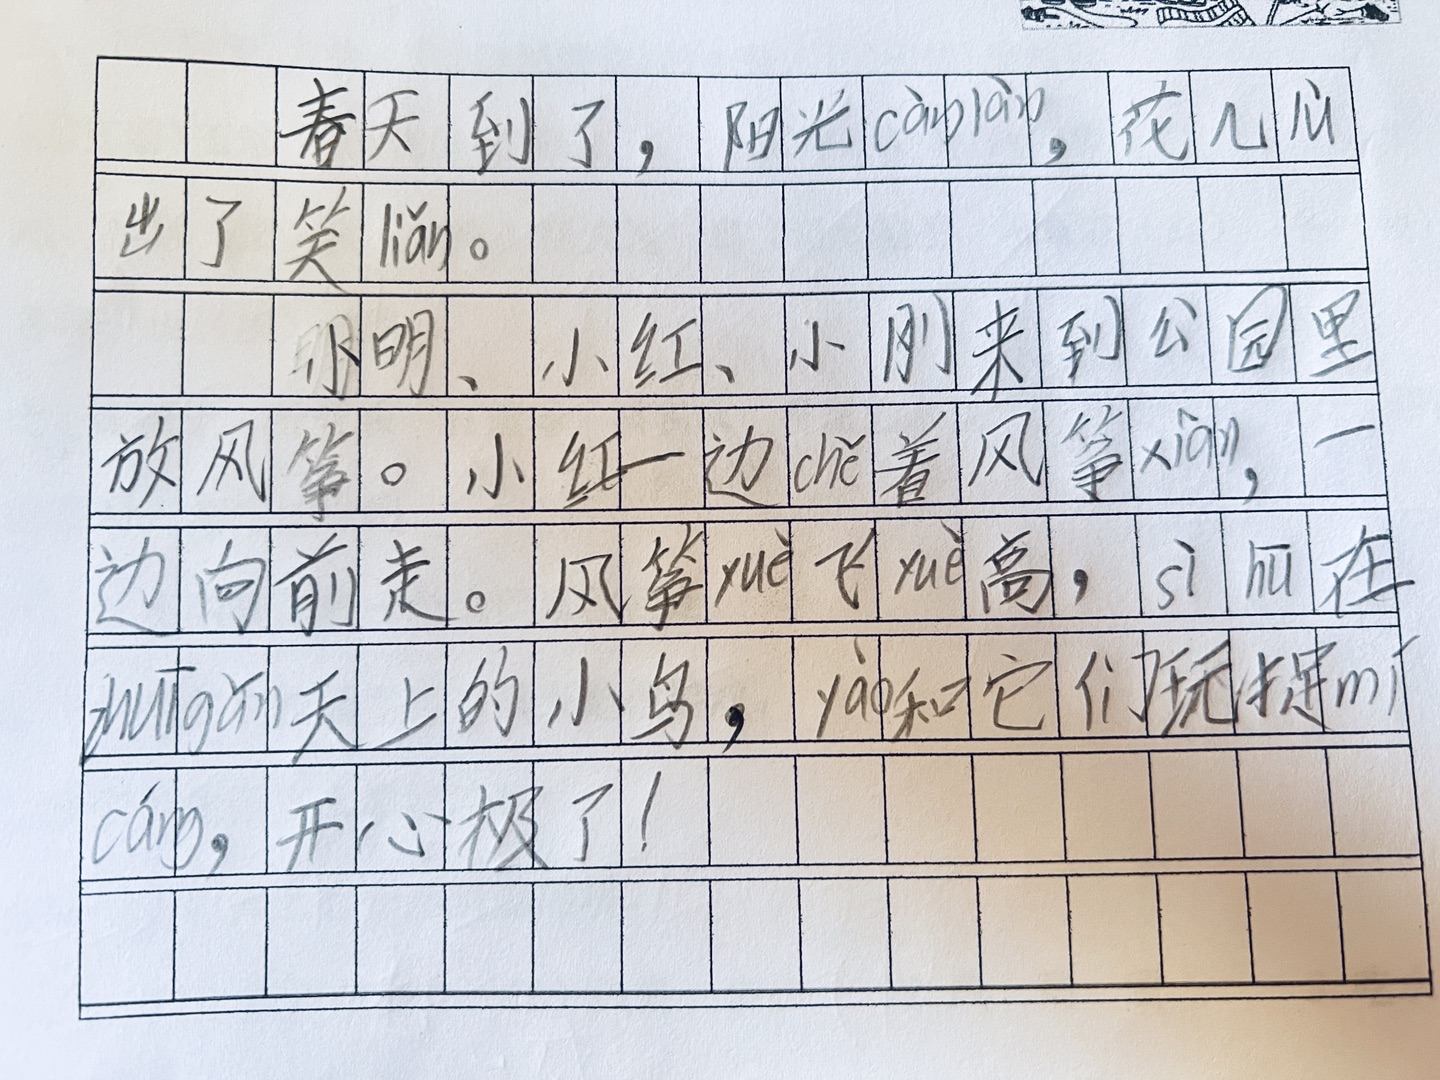 春天到了，阳光cànlàn，花儿lù
出了笑liǎn。
小明、小红、小刚来到公园里
放风筝。小红一边chě着风筝xiàn，一
边向前走。风筝yuè飞yuè高，sì hū在
zhuīgǎn天上的小鸟，yào和它们玩捉mí
cáng，开心极了！